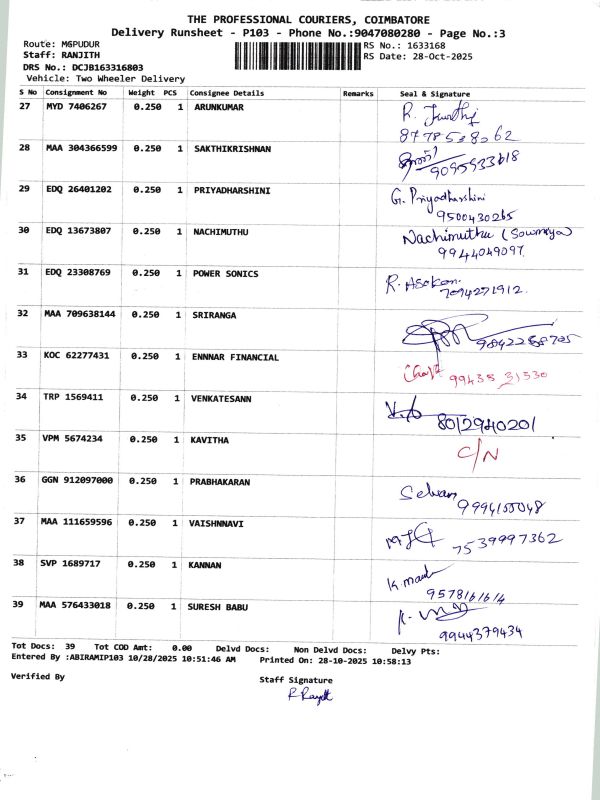 THE PROFESSIONAL COURIERS, COIMBATORE
Delivery Runsheet - P103 - Phone No.:9047080280 - Page No.:3
Route: M6PUDUR
RS No.: 1633168
Staff: RANJITH
RS Date: 28-Oct-2025
DRS No.: DCJB163316803
Vehicle: Two Wheeler Delivery
S No Consignment No Weight PCS Consignee Details Remarks Seal & Signature
27 MYD 7406267 0.250 1 ARUNKUMAR R.
8778538062
28 MAA 304366599 0.250 1 SAKTHIKRISHNAN
9095933618
29 EDQ 26401202 0.250 1 PRIYADHARSHINI G. Priyadharshini
9500430265
30 EDQ 13673807 0.250 1 NACHIMUTHU Nachimuthu (Sowmya)
9944049097
31 EDQ 23308769 0.250 1 POWER SONICS R. Asokan.
7094271912
32 MAA 709638144 0.250 1 SRIRANGA
33 KOC 62277431 0.250 1 ENNNAR FINANCIAL
99435 31530
34 TRP 1569411 0.250 1 VENKATESANN
8012940201
35 VPM 5674234 0.250 1 KAVITHA C/N
36 GGN 912097000 0.250 1 PRABHAKARAN Selvan
37 MAA 111659596 0.250 1 VAISHNNAVI
7539997362
38 SVP 1689717 0.250 1 KANNAN
9578161614
39 MAA 576433018 0.250 1 SURESH BABU
9944379434
Tot Docs: 39 Tot COD Amt: 0.00 Delvd Docs: Non Delvd Docs: Delvy Pts:
Entered By :ABIRAMIP103 10/28/2025 10:51:46 AM Printed On: 28-10-2025 10:58:13
Verified By
Staff Signature